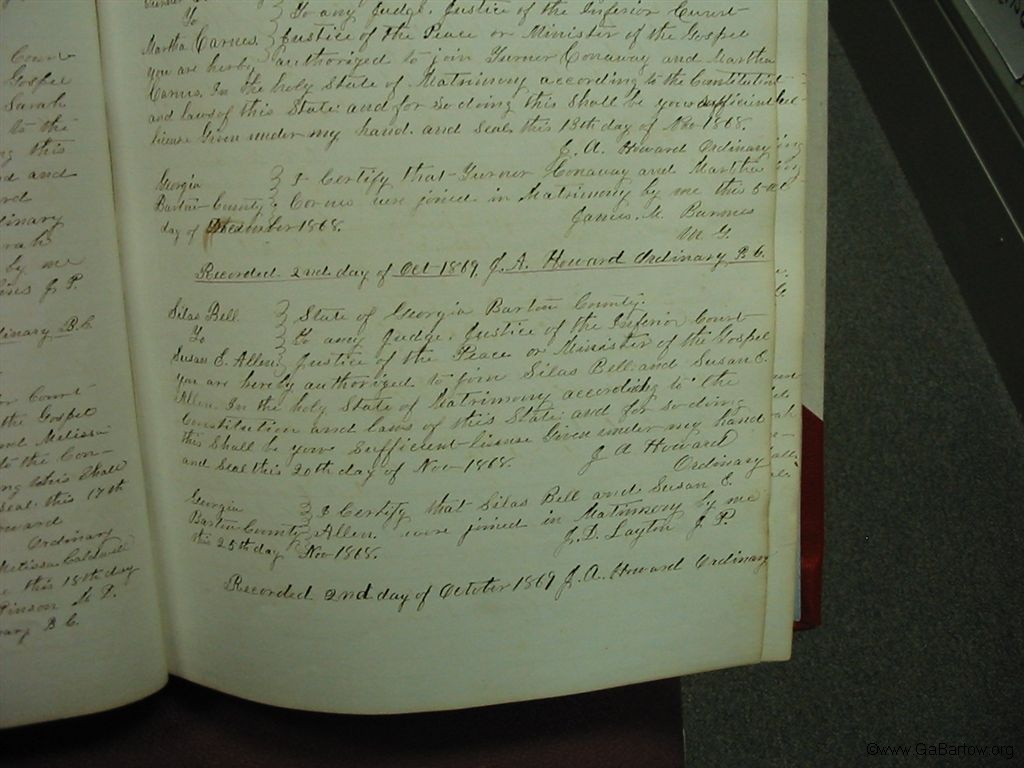 Court
Gospel
Sarah
to the
this
and
ordinary
by me
J. P.
B. C.
Court
the Gospel
and Melissa
to the Con-
this Shall
Seal this 17th
Howard
Ordinary
Melissa Caldwell
this 18th day
B. C.
To } To any Judge. Justice of the Inferior Court
Martha Carnes. } Justice of the Peace or Minister of the Gospel
You are hereby authorized to join Turner Conaway and Martha
Carnes. In the holy State of Matrimony according to the Constitution
and laws of this State and for so doing this Shall be your sufficient
license Given under my hand. and Seal this 13th day of Nov 1868.
J. A. Howard Ordinary
Georgia } I Certify that Turner Conaway and Martha
Bartow County } Carnes were joined in Matrimony by me this 5
day of December 1868.
James. M. Barnes
M. G.
Recorded 2nd day of Oct 1869 J. A. Howard Ordinary B. C.
Silas Bell } State of Georgia Bartow County.
To } To any Judge. Justice of the Inferior Court
Susan E. Allen. } Justice of the Peace or Minister of the Gospel
You are hereby authorized to join Silas Bell and Susan E.
Allen. In the holy State of Matrimony according to the
Constitution and laws of this State and for so doing
this Shall be your Sufficient license Given under my hand
and Seal this 20th day of Nov 1868.
J A Howard
Ordinary
Georgia } I Certify that Silas Bell and Susan E.
Bartow County } Allen were joined in Matrimony by me
this 25th day Nov 1868.
J. D. Layton J. P.
Recorded 2nd day of October 1869 J. A. Howard Ordinary
©www.GaBartow.org